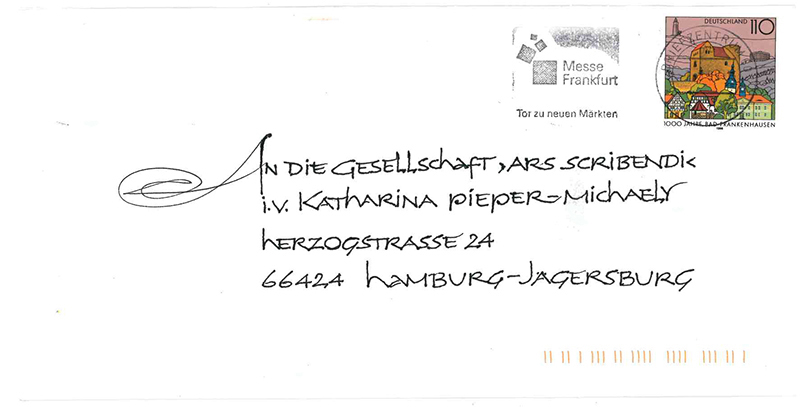 Messe
Frankfurt
Tor zu neuen Märkten
DEUTSCHLAND 110
BRIEFZENTRUM
1000 JAHRE BAD FRANKENHAUSEN
An die Gesellschaft ›Ars Scribendi‹
i.V. Katharina Pieper-Michaely
Herzogstrasse 24
66424 Hamburg-Jagersburg